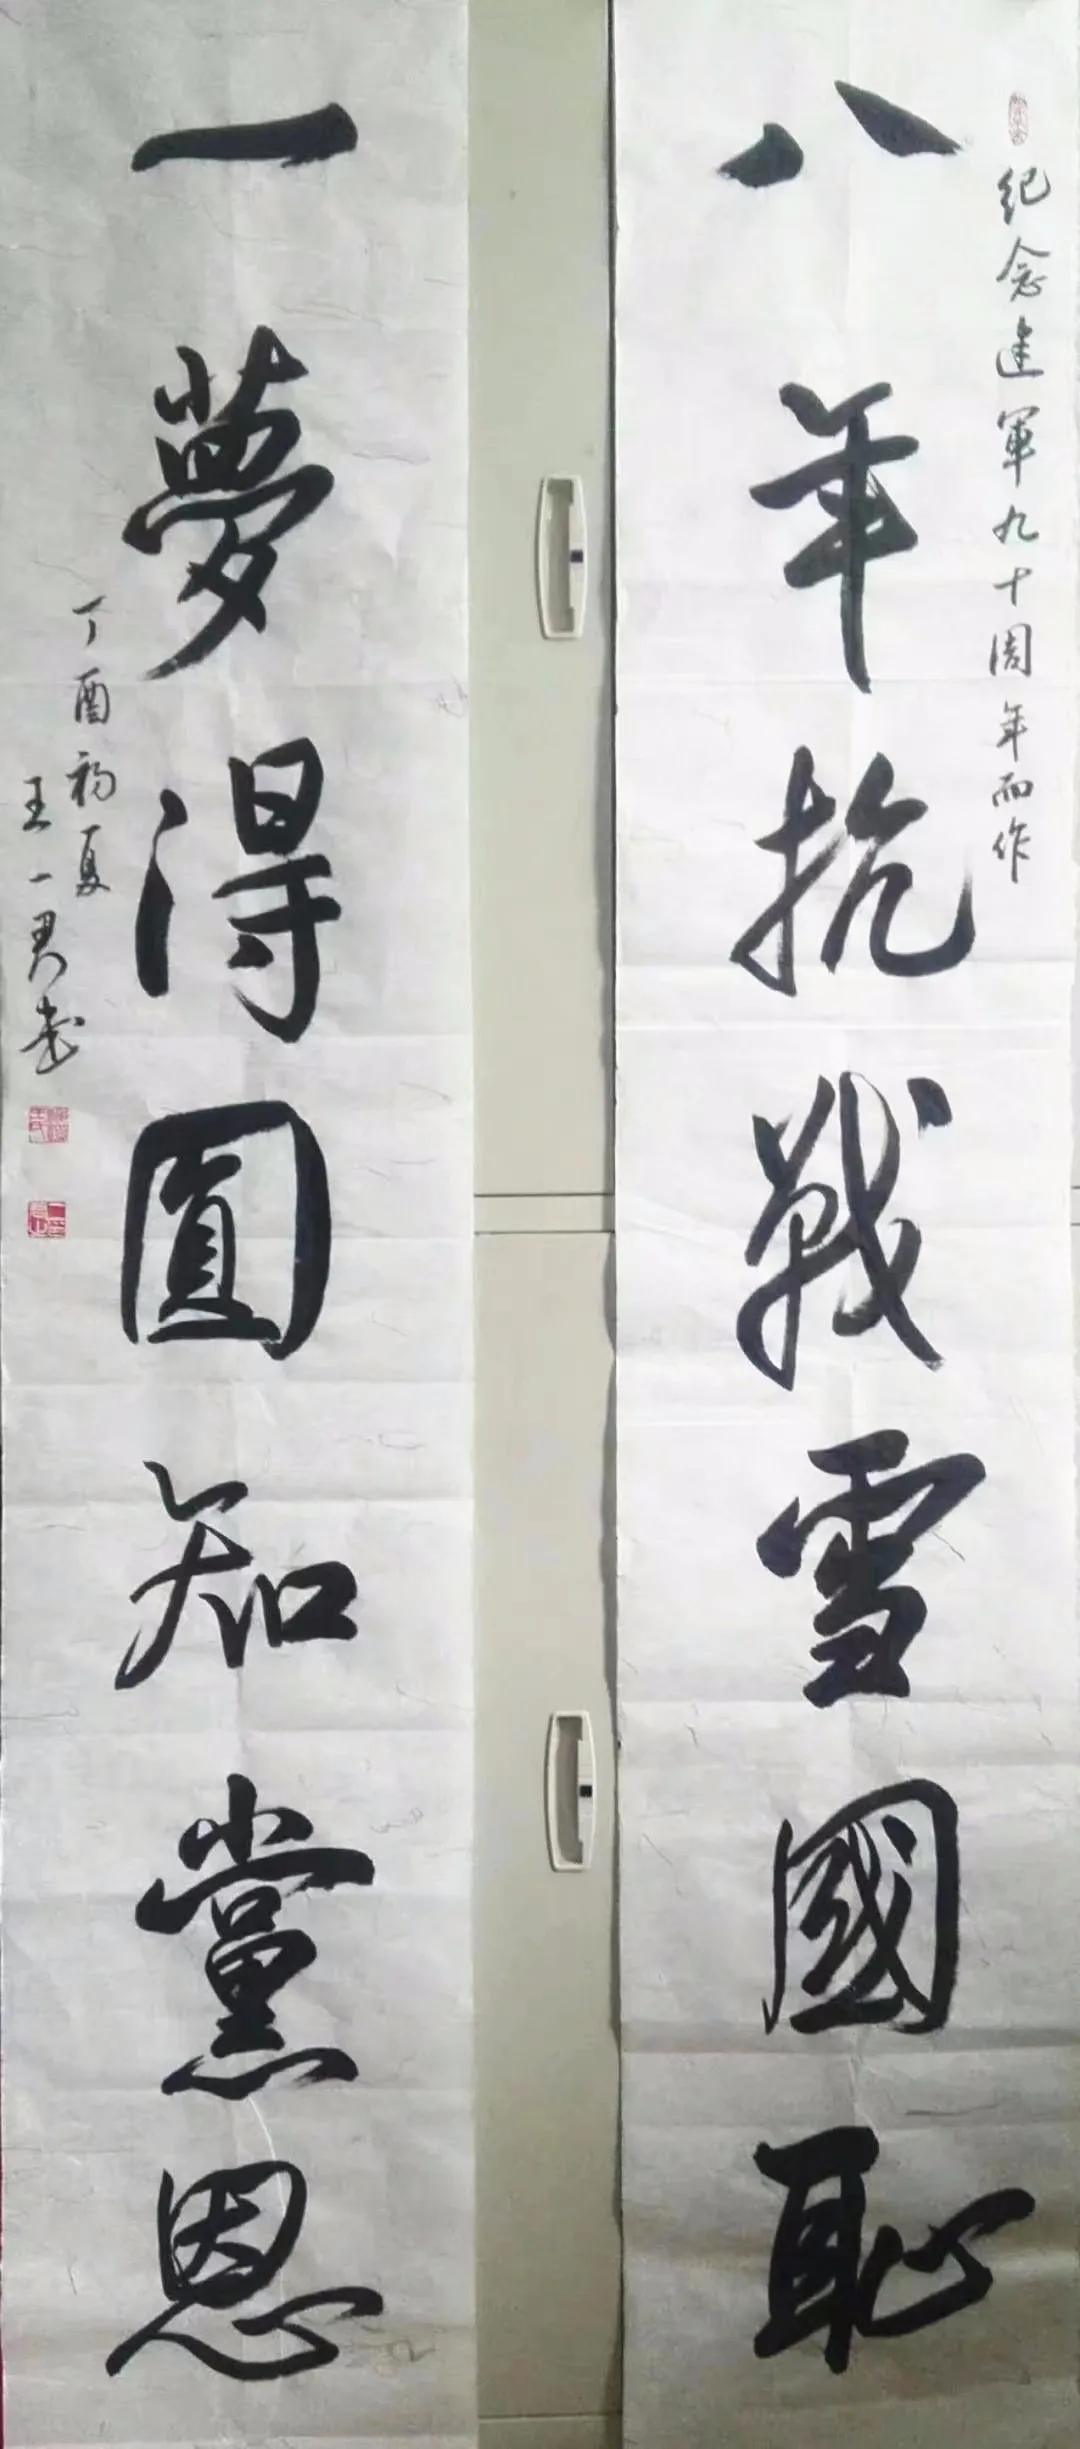 紀念建軍九十周年而作
八年抗戰雪國恥
一夢得圓知黨恩
丁酉初夏
王一君书